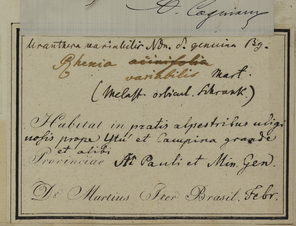 A. Cogniaux
Uranthera variabilis Ndn. δ. genuina Bg.
Rhexia acinifolia
variabilis Mart.
(Melast. orbicul. Schrank)
Habitat in pratis alpestribus uligi
nosis prope Ytú et Campina grande
et alibi
Provinciae St. Pauli et Min. Gen.
De Martius Iter Brasil. Febr.